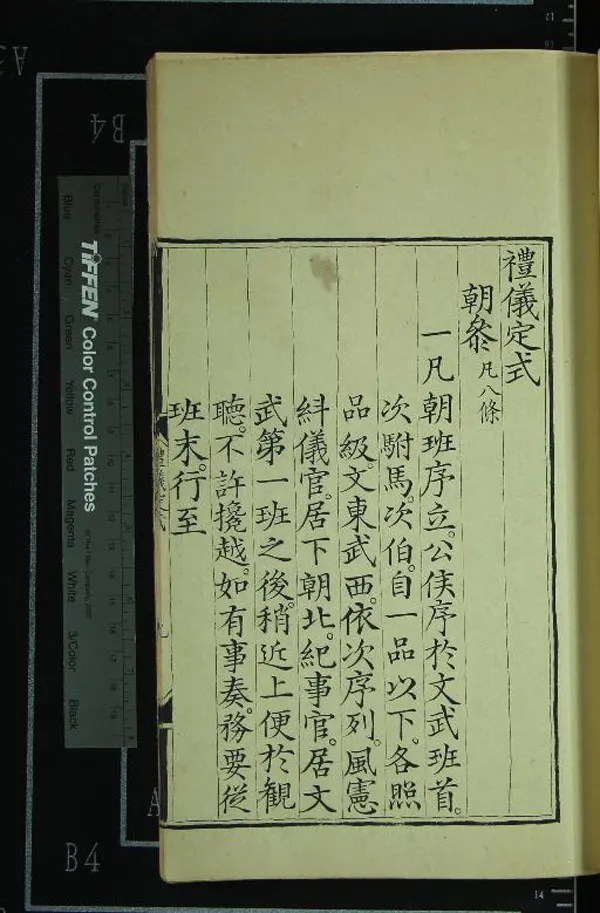 禮儀定式
朝叅 凡八條
一凡朝班序立。公侯序於文武班首。
次駙馬。次伯。自一品以下。各照
品級。文東武西。依次序列。風憲
糾儀官。居下朝北。紀事官。居文
武第一班之後。稍近上便於觀
聽。不許攙越。如有事奏。務要從
班末。行至
禮儀定式
B4
B4
TIFFEN Color Control Patches
Blue Cyan Green Yellow Red Magenta White 3/Color Black
Centimetres
© The Tiffen Company, 2007
A3
A
14